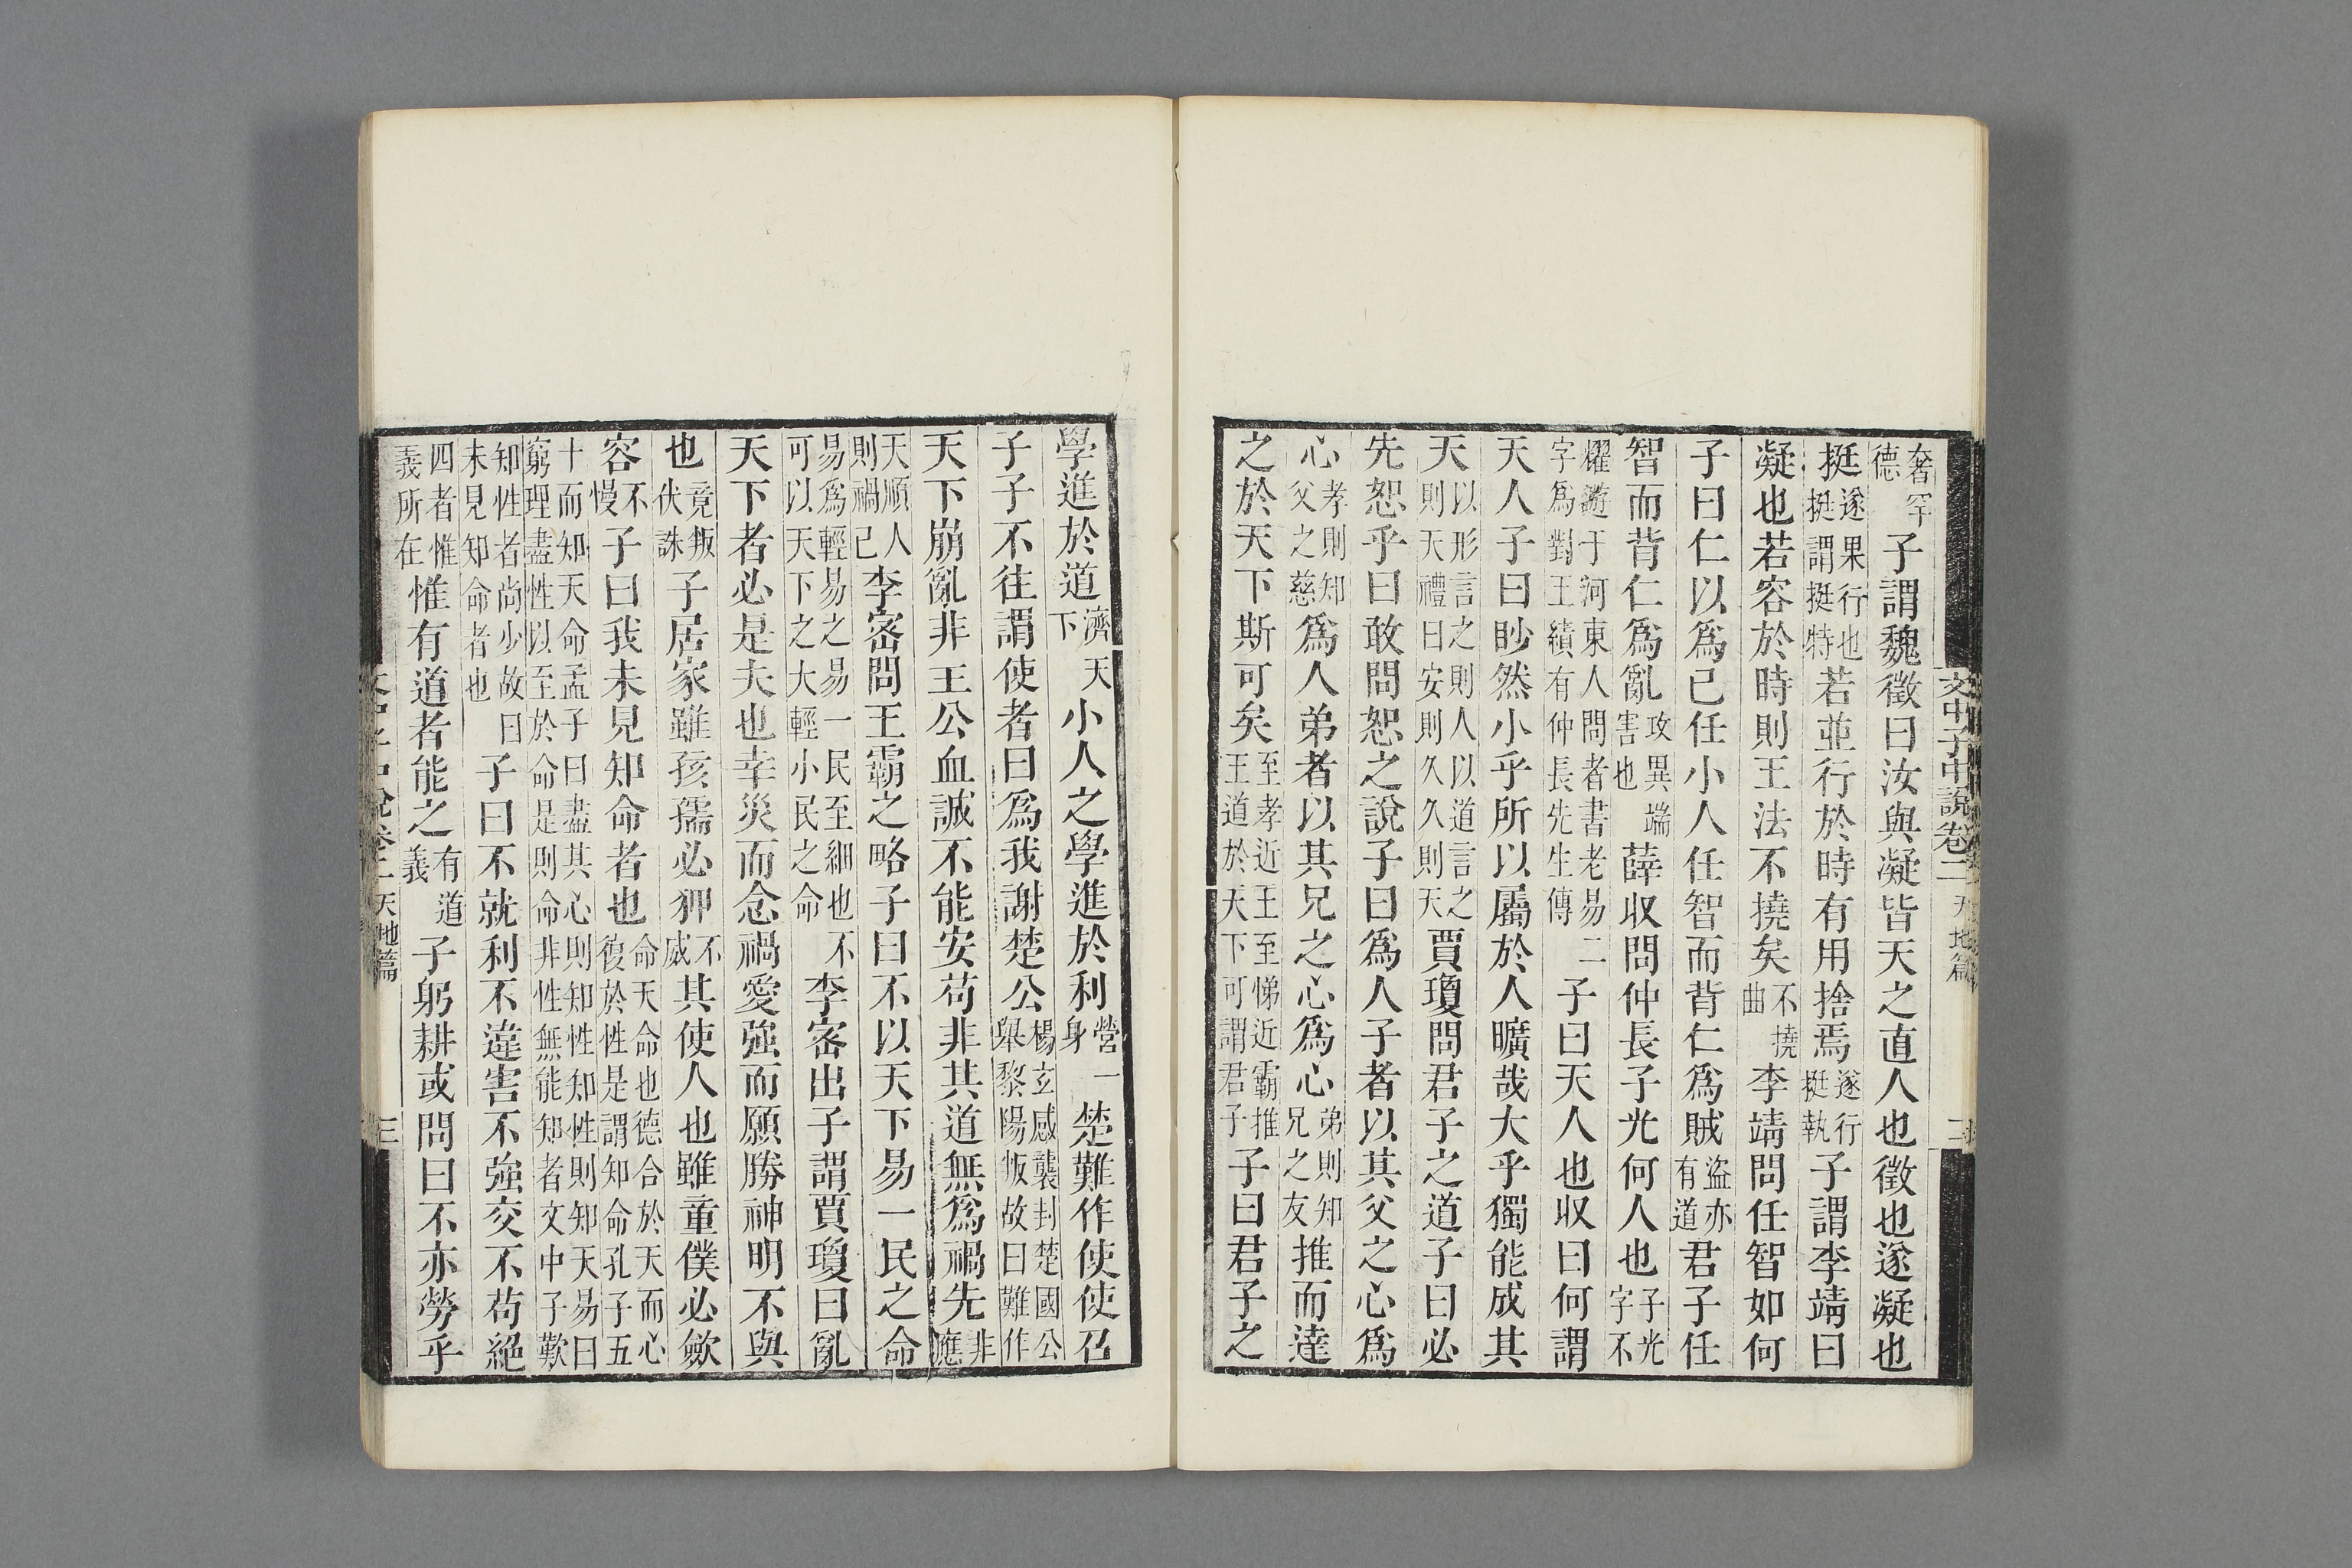 文中子中說卷二 天地篇 二
奢罕德子謂魏徵曰汝與凝皆天之直人也徵也遂凝也
挺遂果行也挺謂挺特若並行於時有用捨焉遂行挺執子謂李靖曰
凝也若容於時則王法不撓矣不撓曲李靖問任智如何
子曰仁以爲己任小人任智而背仁爲賊盜亦有道君子任
智而背仁爲亂攻異端害也薛収問仲長子光何人也子光字不
燿遊于河東人問者書老易二字爲對王績有仲長先生傳子曰天人也収曰何謂
天人子曰眇然小乎所以屬於人曠哉大乎獨能成其
天以形言之則人以道言之則天禮曰安則久久則天賈瓊問君子之道子曰必
先恕乎曰敢問恕之說子曰爲人子者以其父之心爲
心孝則知父之慈爲人弟者以其兄之心爲心弟則知兄之友推而達
之於天下斯可矣至孝近王至悌近霸推王道於天下可謂君子子曰君子之
學進於道濟天下小人之學進於利營一身楚難作使使召
子子不往謂使者曰爲我謝楚公楊玄感襲封楚國公舉黎陽叛故曰難作
天下崩亂非王公血誠不能安苟非其道無爲禍先非應
天順人則禍己李密問王霸之略子曰不以天下易一民之命
易爲輕易之易一民至細也不可以天下之大輕小民之命李密出子謂賈瓊曰亂
天下者必是夫也幸災而念禍愛強而願勝神明不與
也竟叛伏誅子居家雖孩孺必狎不威其使人也雖童僕必歛
容不慢子曰我未見知命者也命天命也德合於天而心復於性是謂知命孔子五
十而知天命孟子曰盡其心則知性知性則知天易曰窮理盡性以至於命是則命非性無能知者文中子歎
知性者尚少故曰未見知命者也子曰不就利不違害不強交不苟絕
四者惟義所在惟有道者能之有道義子躬耕或問曰不亦勞乎
文中子中說卷二 天地篇 三